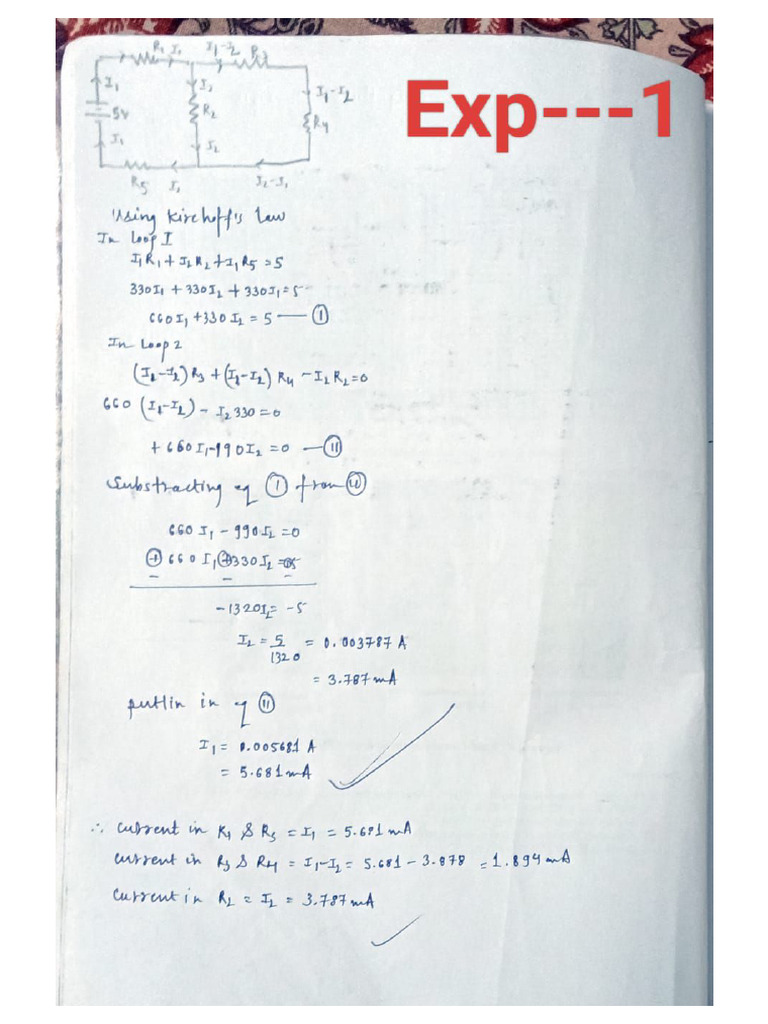 R1 I1 I1-I2 R3
I1 I2 I1-I2
5V R2 R4
I1 I2
R5 I1 I2-I1
Exp---1
Using Kirchoff's Law
In Loop I
I1R1 + I2R2 + I1R5 = 5
330I1 + 330I2 + 330I1 = 5
660I1 + 330I2 = 5 — (I)
In Loop 2
(I1-I2) R3 + (I1-I2) R4 - I2R2 = 0
660 (I1-I2) - I2 330 = 0
+ 660I1 - 990I2 = 0 — (II)
Substracting eq (I) from (II)
660 I1 - 990I2 = 0
(+) 660 I1 (+) 330I2 = 5
- - -
-1320I2 = -5
I2 = 5/1320 = 0.003787 A
= 3.787 mA
putlin in eq (II)
I1 = 0.005681 A
= 5.681 mA
∴ current in R1 & R5 = I1 = 5.681 mA
current in R3 & R4 = I1-I2 = 5.681 - 3.878 = 1.894 mA
current in R2 = I2 = 3.787 mA